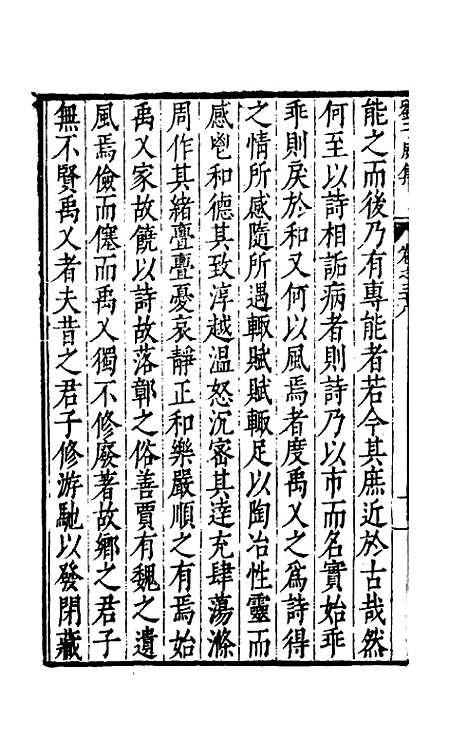 能之而後乃有專能者若今其庶近於古哉然
何至以詩相詬病者則詩乃以市而名實始乖
乖則戾於和又何以風焉者度禹乂之為詩得
之情所感隨所遇輙賦賦輙足以陶冶性靈而
感鬯和德其致淳越温怒沉審其逹充肆蕩滌
周作其緒亹亹憂哀靜正和樂嚴順之有焉始
禹乂家故饒以詩故落鄣之俗善賈有魏之遺
風焉儉而僿而禹乂獨不修廢著故鄉之君子
無不賢禹乂者夫昔之君子修游馳以發閉藏